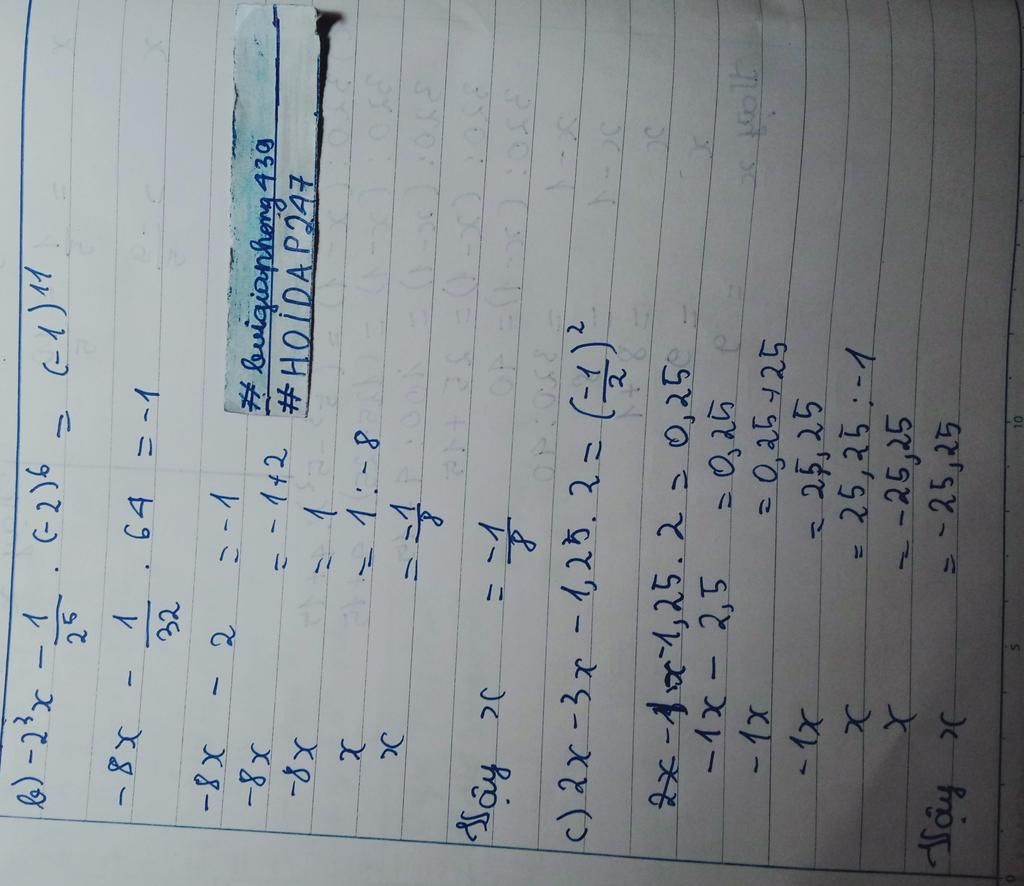 b) -2³x - 1/25 . (-2)⁶ = (-1)¹¹
-8x - 1/32 . 64 = -1
-8x - 2 = -1
-8x = -1+2
-8x = 1
x = 1 : -8
x = -1/8
Vậy x = -1/8
#buigiaphong439
#HOIDAP247
c) 2x - 3x - 1,25 . 2 = (-1/2)²
-1x - 1,25 . 2 = 0,25
-1x - 2,5 = 0,25
-1x = 0,25 + 25
-1x = 25,25
x = 25,25 : -1
x = -25,25
Vậy x = -25,25